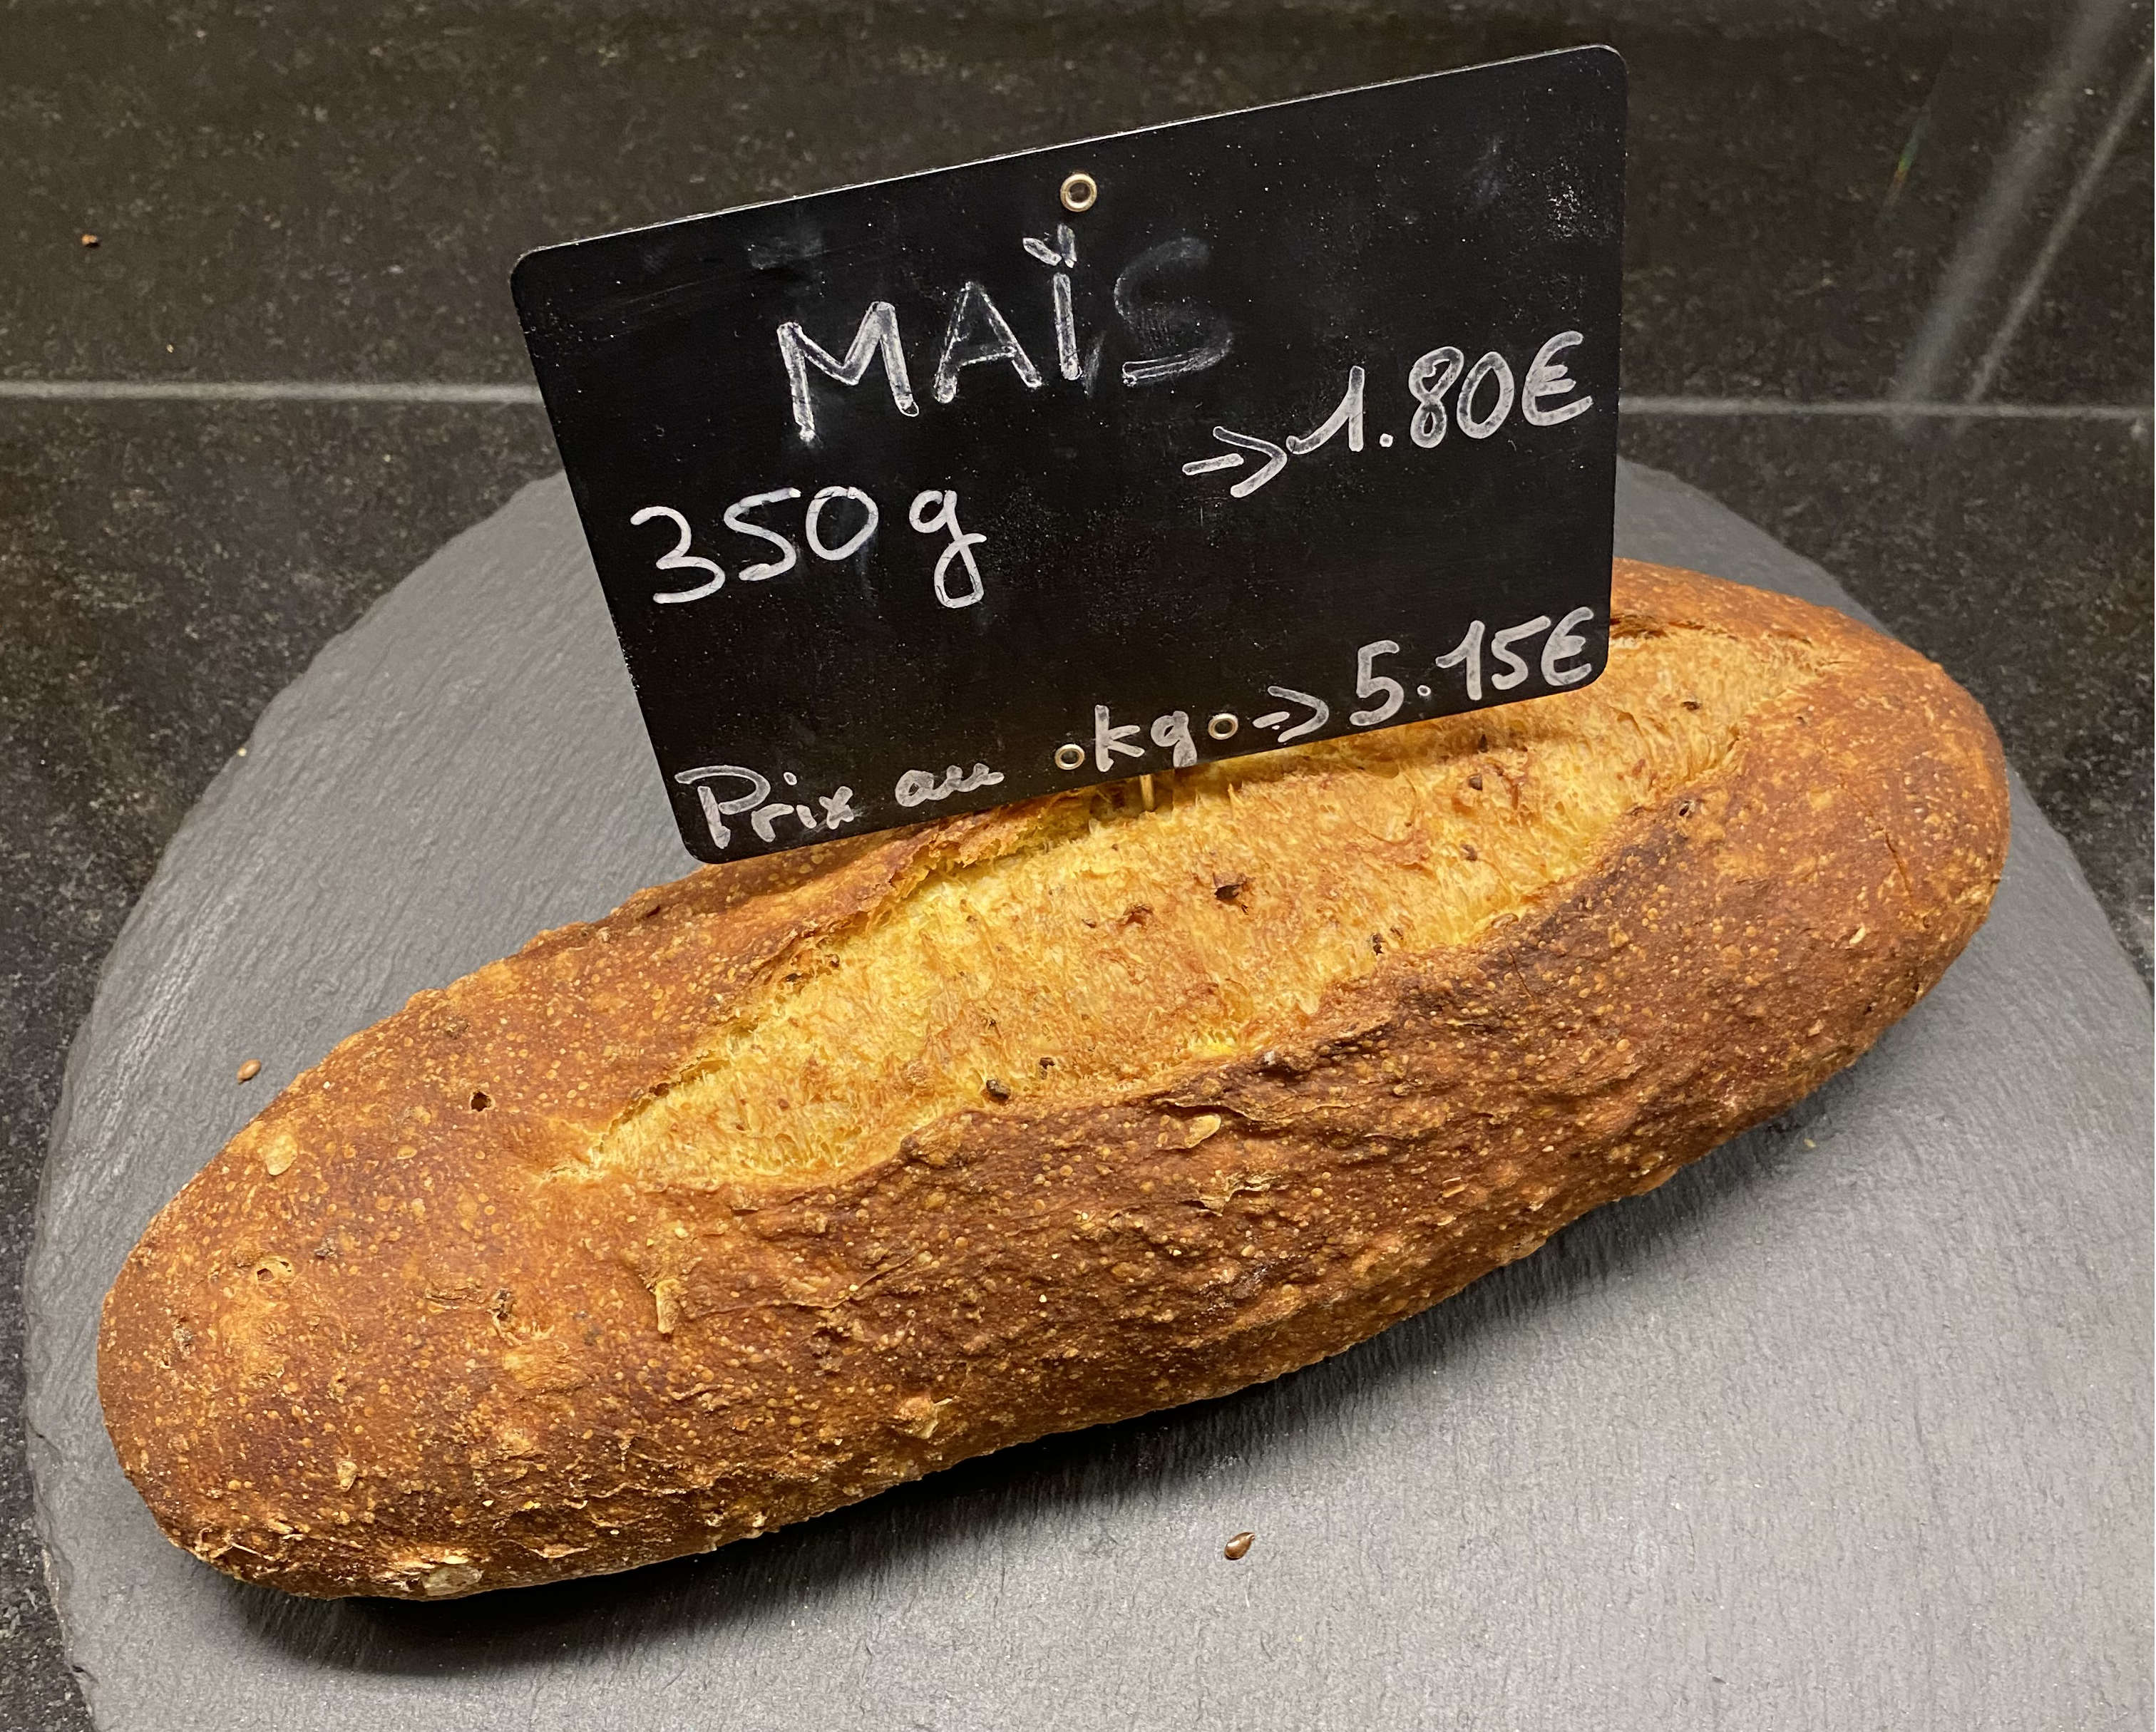 MAÏS
350g -> 1.80€
Prix au kg -> 5.15€